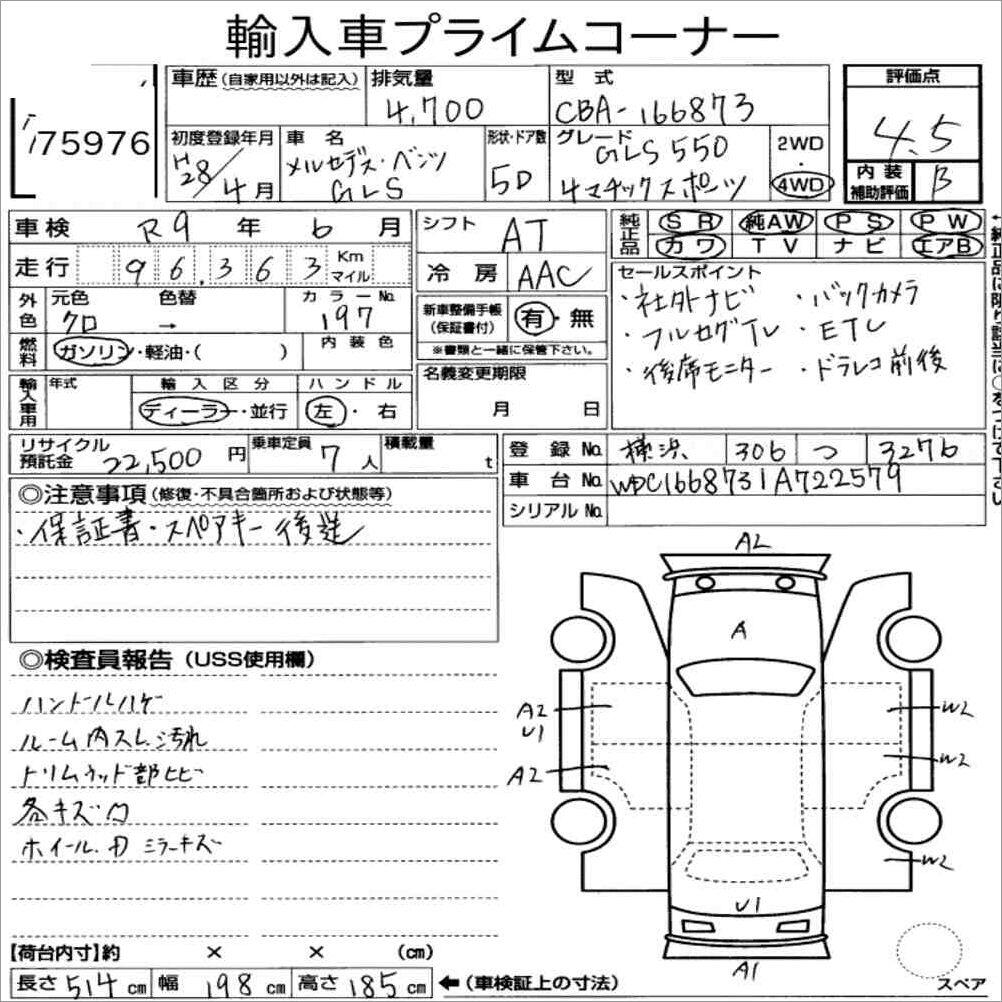 輸入車プライムコーナー
75976
車歴(自家用以外は記入)
排気量
4,700
型 式
CBA-166873
評価点
4.5
初度登録年月
H28/4月
車 名
メルセデス・ベンツ
GLS
形状・ドア数
5D
グレード
GLS550
4マチックスポーツ
2WD
・
4WD
内 装
補助評価
B
車検 R9 年 6 月
走行 96,363 Km
マイル
シフト AT
冷 房 AAC
純正品
SR 純AW PS PW
カワ TV ナビ エアB
外色
元色 クロ
色替 →
カラーNo. 197
燃料
ガソリン・軽油・( )
内装色
新車整備手帳
(保証書付)
有・無
※書類と一緒に保管下さい。
セールスポイント
・社外ナビ ・バックカメラ
・フルセグTV ・ETC
・後席モニター ・ドラレコ前後
輸入車用
年式
輸入区分
ディーラー・並行
ハンドル
左・右
名義変更期限
月 日
リサイクル
預託金 22,500 円
乗車定員 7 人
積載量 t
登 録 No. 横浜 306 つ 3276
車 台 No. WDC1668731A722579
シリアル No.
◎注意事項(修復・不具合箇所および状態等)
・保証書・スペアキー後送
◎検査員報告(USS使用欄)
ハンドルハゲ
ルーム内スレ汚れ
トリムウッド部ヒビ
各キズ凹
ホイール、ドミラーキズ
A2
A
A2
U1
A2
W2
W2
W2
U1
A1
スペア
【荷台内寸】約 × × (cm)
長さ 514 cm 幅 198 cm 高さ 185 cm ←(車検証上の寸法)